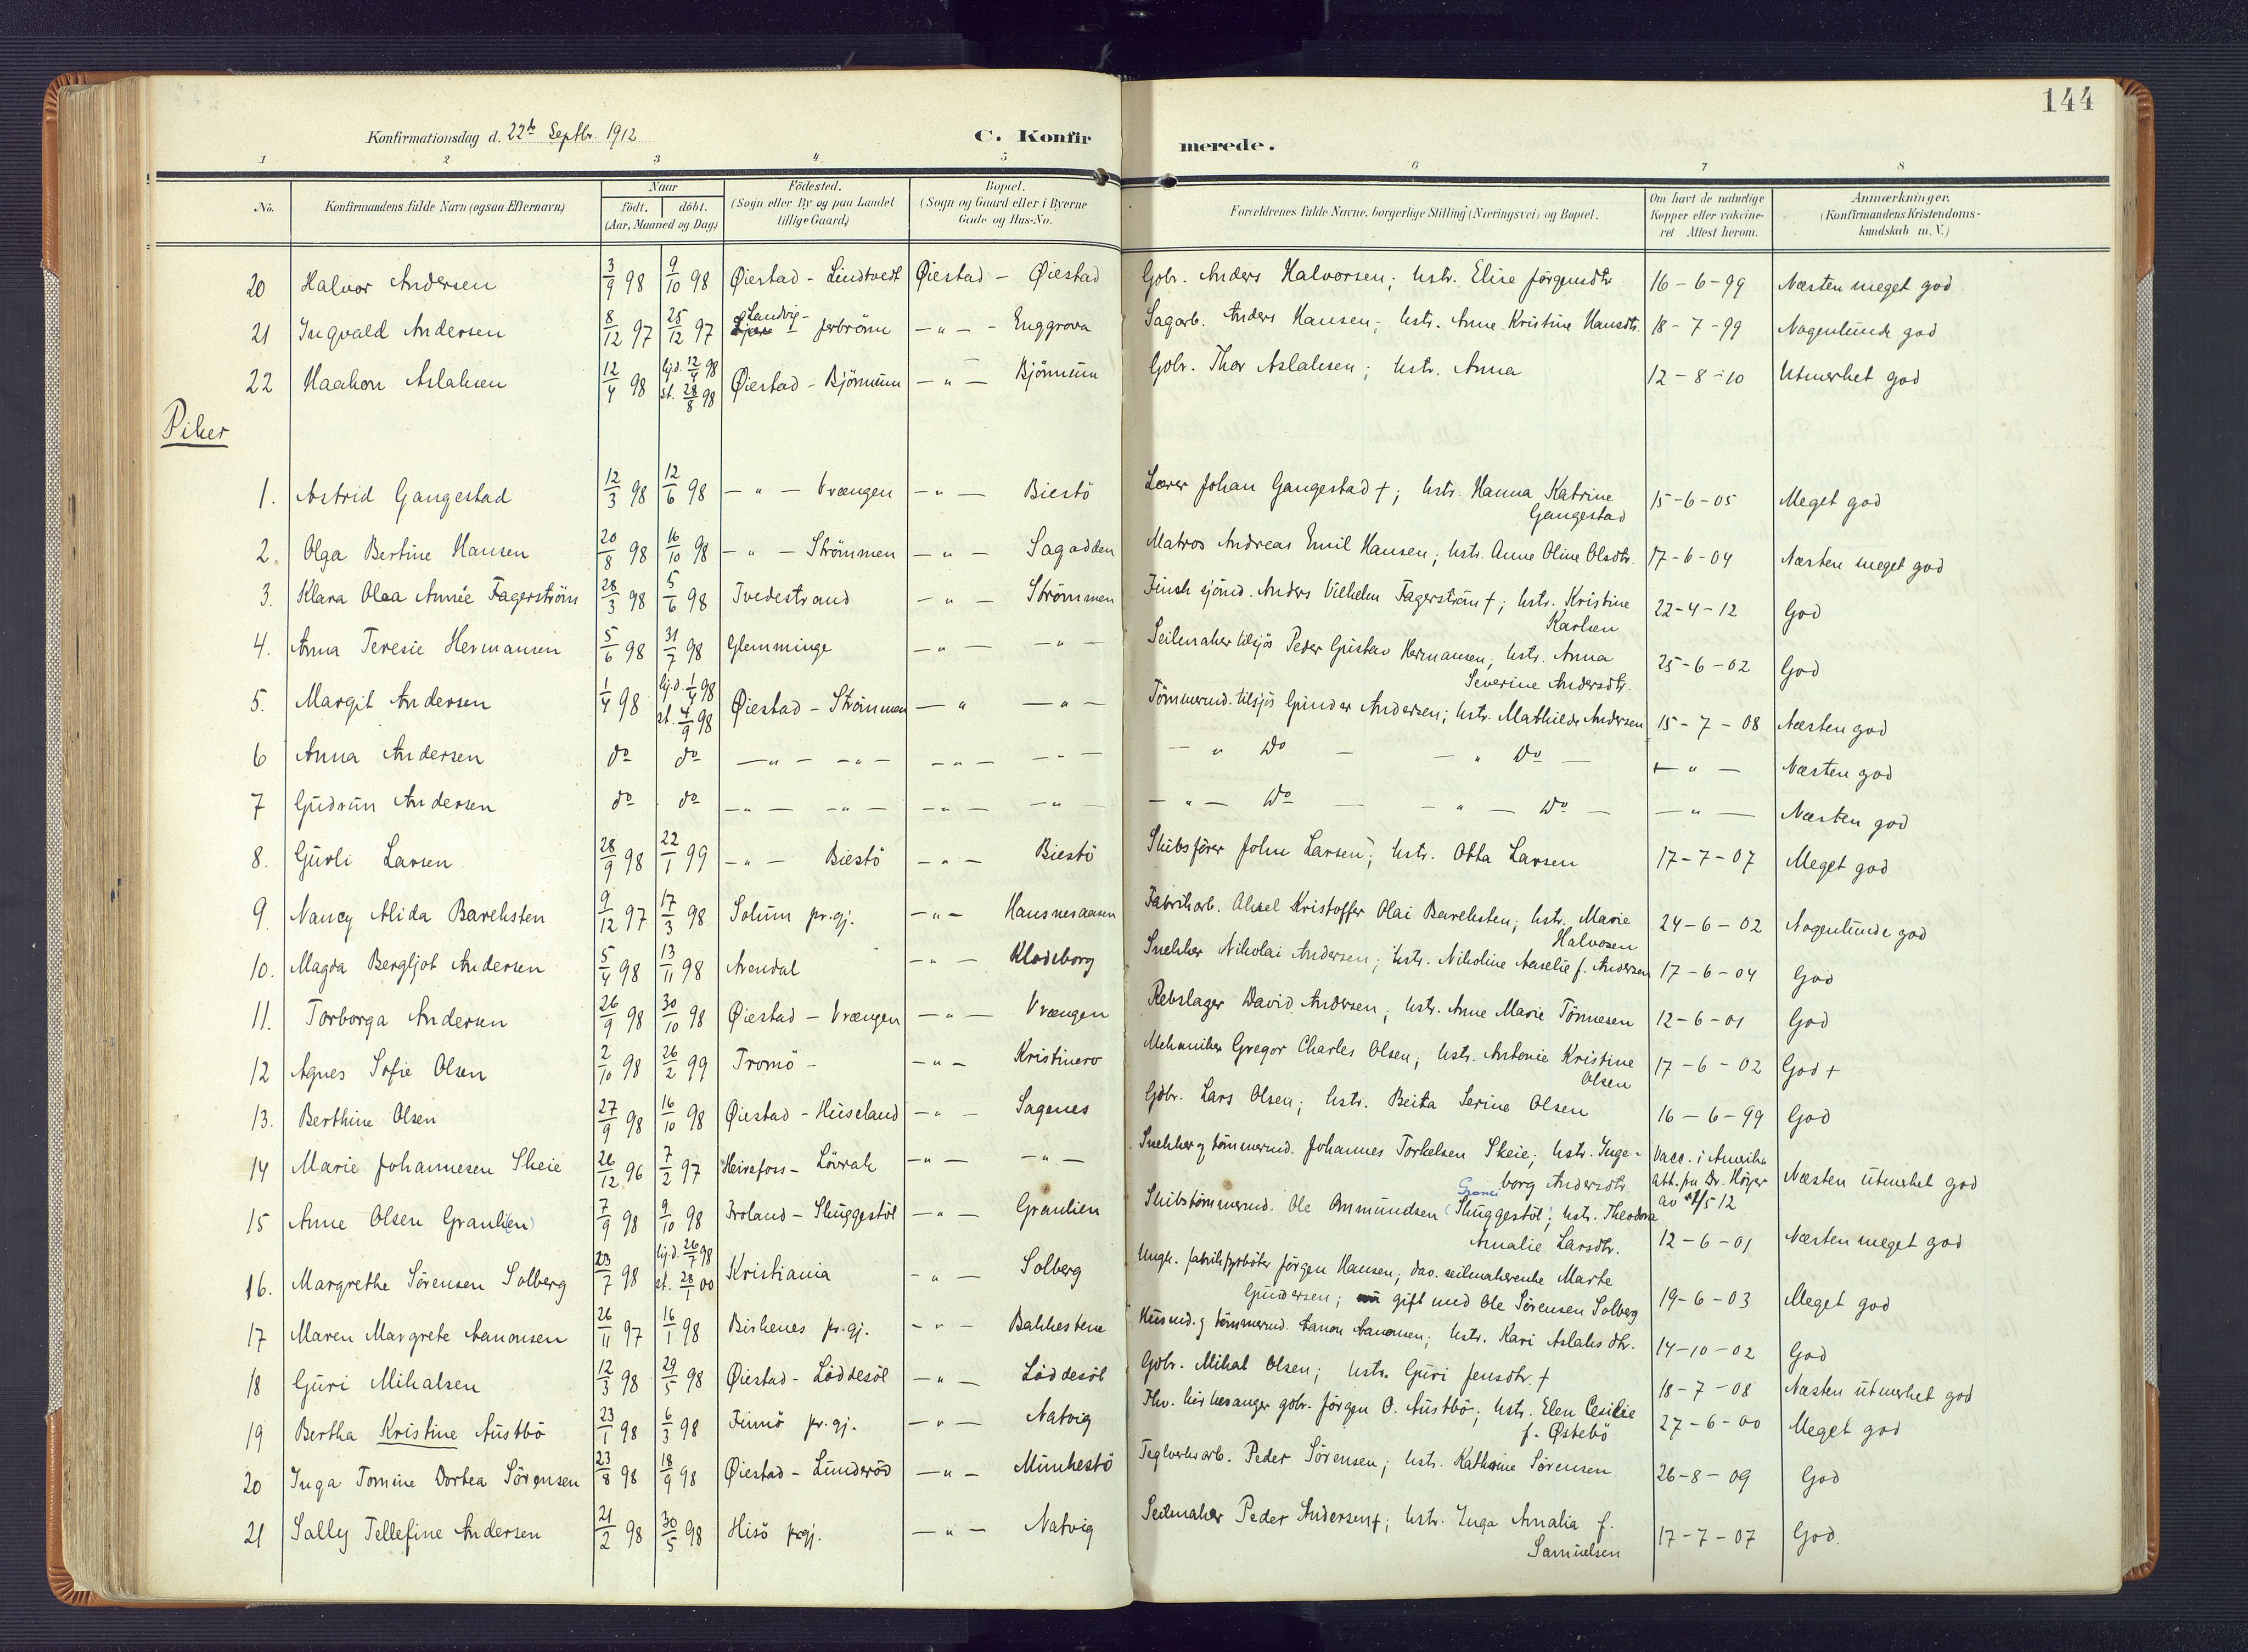 144
Konfirmationsdag d. 22de Septbr. 1912
C. Konfirmerede.
1 2 3 4 5 6 7 8
No. Konfirmandens fulde Navn (ogsaa Efternavn) Naar födt. döbt. (Aar, Maaned og Dag) Födested. (Sogn eller By og paa Landet tillige Gaard) Bopæl. (Sogn og Gaard eller i Byerne Gade og Hus-No. Forældrenes fulde Navne, borgerlige Stilling (Næringsvei) og Bopæl. Om havt de naturlige Kopper eller vakcineret Attest herom. Anmærkninger. (Konfirmandens Kristendomskundskab m. V.)
20 Halvor Andersen 3/9 98 9/10 98 Øiestad - Lindtvedt Øiestad - Øiestad Gbr. Anders Halvorsen; hstr. Elise Jörgensdtr 16-6-99 Næsten meget god
21 Ingvald Andersen 8/12 97 25/12 97 Landvig - " - Enggrova Sagarb. Anders Hansen; hstr. Anne Kristine Hansdtr. 18-7-99 Nogenlunde god
22 Haakon Aslaksen 12/4 98 hj.d. 12/4 98 st. 28/8 98 Øiestad - Björnum - " - Björnum Gbr. Thor Aslaksen; hstr. Anna 12-8-10 Utmerket god
Piker
1. Astrid Gangestad 12/3 98 12/6 98 - " - Vrængen - " - Biestö Lærer Johan Gangestad †; hstr. Hanna Katrine Gangestad 15-6-05 Meget god
2. Olga Bertine Hansen 20/8 98 16/10 98 - " - Strömmen - " - Sagodden Matros Andreas Emil Hansen; hstr. Anne Oline Olsdtr. 17-6-04 Næsten meget god
3. Klara Olea Année Fagerström 28/3 98 5/6 98 Tvedestrand - " - Strömmen Finsk sjömd. Anders Vilhelm Fagerström †; hstr. Kristine Karlsen 22-4-12 God
4. Anna Teresie Hermansen 5/6 98 31/7 98 Glemminge - " - - " - Seilmaker tilsjös Peder Gustav Hermansen; hstr. Anna Severine Andersdtr. 25-6-02 God
5. Margit Andersen 1/4 98 hj.d. 1/4 98 st. 4/9 98 Øiestad - Strömmen - " - " - Tömmermd. tilsjös Gunder Andersen; hstr. Mathilde Andersen 15-7-08 Næsten god
6 Anna Andersen do do - " - - " - - " - - " - - " Do - - " Do - - " - Næsten god
7 Gudrun Andersen do do - " - - " - - " - - " - - " - Do - - " - Do - - " - Næsten god
8. Gurli Larsen 28/9 98 22/1 99 - " - Biestö - " - Biestö Skibsförer John Larsen; hstr. Otta Larsen 17-7-07 Meget god
9. Nancy Alida Bareksten 9/12 97 17/3 98 Solum pr.gj. - " - Hausnesaasen Fabrikarb. Aksel Kristoffer Olai Bareksten; hstr. Marie Halvosen 24-6-02 Nogenlunde god
10. Magda Bergljot Andersen 5/4 98 13/11 98 Arendal - " - Klodeborg Snekker Nikolai Andersen; hstr. Nikoline Aaselie f. Andersen 17-6-04 God
11. Torborga Andersen 26/9 98 30/10 98 Øiestad - Vrængen - " - Vrængen Rebslager David Andersen; hstr. Anne Marie Tönnesen 12-6-01 God
12 Agnes Sofie Olsen 2/10 98 26/2 99 Tromö - - " - Kristinero Mekaniker Gregor Charles Olsen; hstr. Antonie Kristine Olsen 17-6-02 God +
13. Berthine Olsen 27/9 98 16/10 98 Øiestad - Huseland - " - Sagenes Gbr. Lars Olsen; hstr. Berta Serine Olsen 16-6-99 God
14 Marie Johannesen Skeie 26/12 96 7/2 97 Heirefoss - Lövrak - " - - " - Snekker og tömmermd. Johannes Torkelsen Skeie; hstr. Ingeborg Andersdtr. Vacc. i Amerika att. fra Dr. Höyer Næsten utmerket god
15 Anne Olsen Granli(en) 7/9 98 9/10 98 Froland - Skuggestöl - " - Granlien Skibstömmermd. Ole Ommundsen (Skuggestöl); Granli hstr. Theodora Amalie Larsdtr. 12-6-01 Næsten meget god
16. Margrethe Sörensen Solberg 23/7 98 hj.d. 26/7 98 st. 28/1 00 Kristiania - " - Solberg Ungk. fabrikfyrböter Jörgen Hansen; dav. seilmakerenke Marte Gundersen; gift med Ole Sörensen Solberg 19-6-03 Meget god
17 Maren Margrete Aanonsen 26/11 97 16/1 98 Birkenes pr.gj. - " - Bakkestene Husmd. og tömmermd. Aanon Aanonsen; hstr. Kari Aslaksdtr. 14-10-02 God
18 Guri Mikalsen 12/3 98 29/5 98 Øiestad - Löddesöl - " - Löddesöl Gbr. Mikal Olsen; hstr. Guri Jensdtr. † 18-7-08 Næsten utmerket god
19 Bertha Kristine Austbö 23/1 98 6/3 98 Finnö pr.gj. - " - Natvig Fhv. kirkesanger gbr. Jörgen O. Austbö; hstr. Elen Cesilie f. Østebö 27-6-00 Meget god
20 Inga Tomine Dortea Sörensen 23/8 98 18/9 98 Øiestad - Lunderöd - " - Munkestö Teglverksarb. Peder Sörensen; hstr. Kathrine Sörensen 26-8-09 God
21 Sally Tellefine Andersen 21/2 98 30/5 98 Hisö prgj. - " - Natvig Seilmaker Peder Andersen †; hstr. Inga Amalia f. Samuelsen 17-7-07 God.